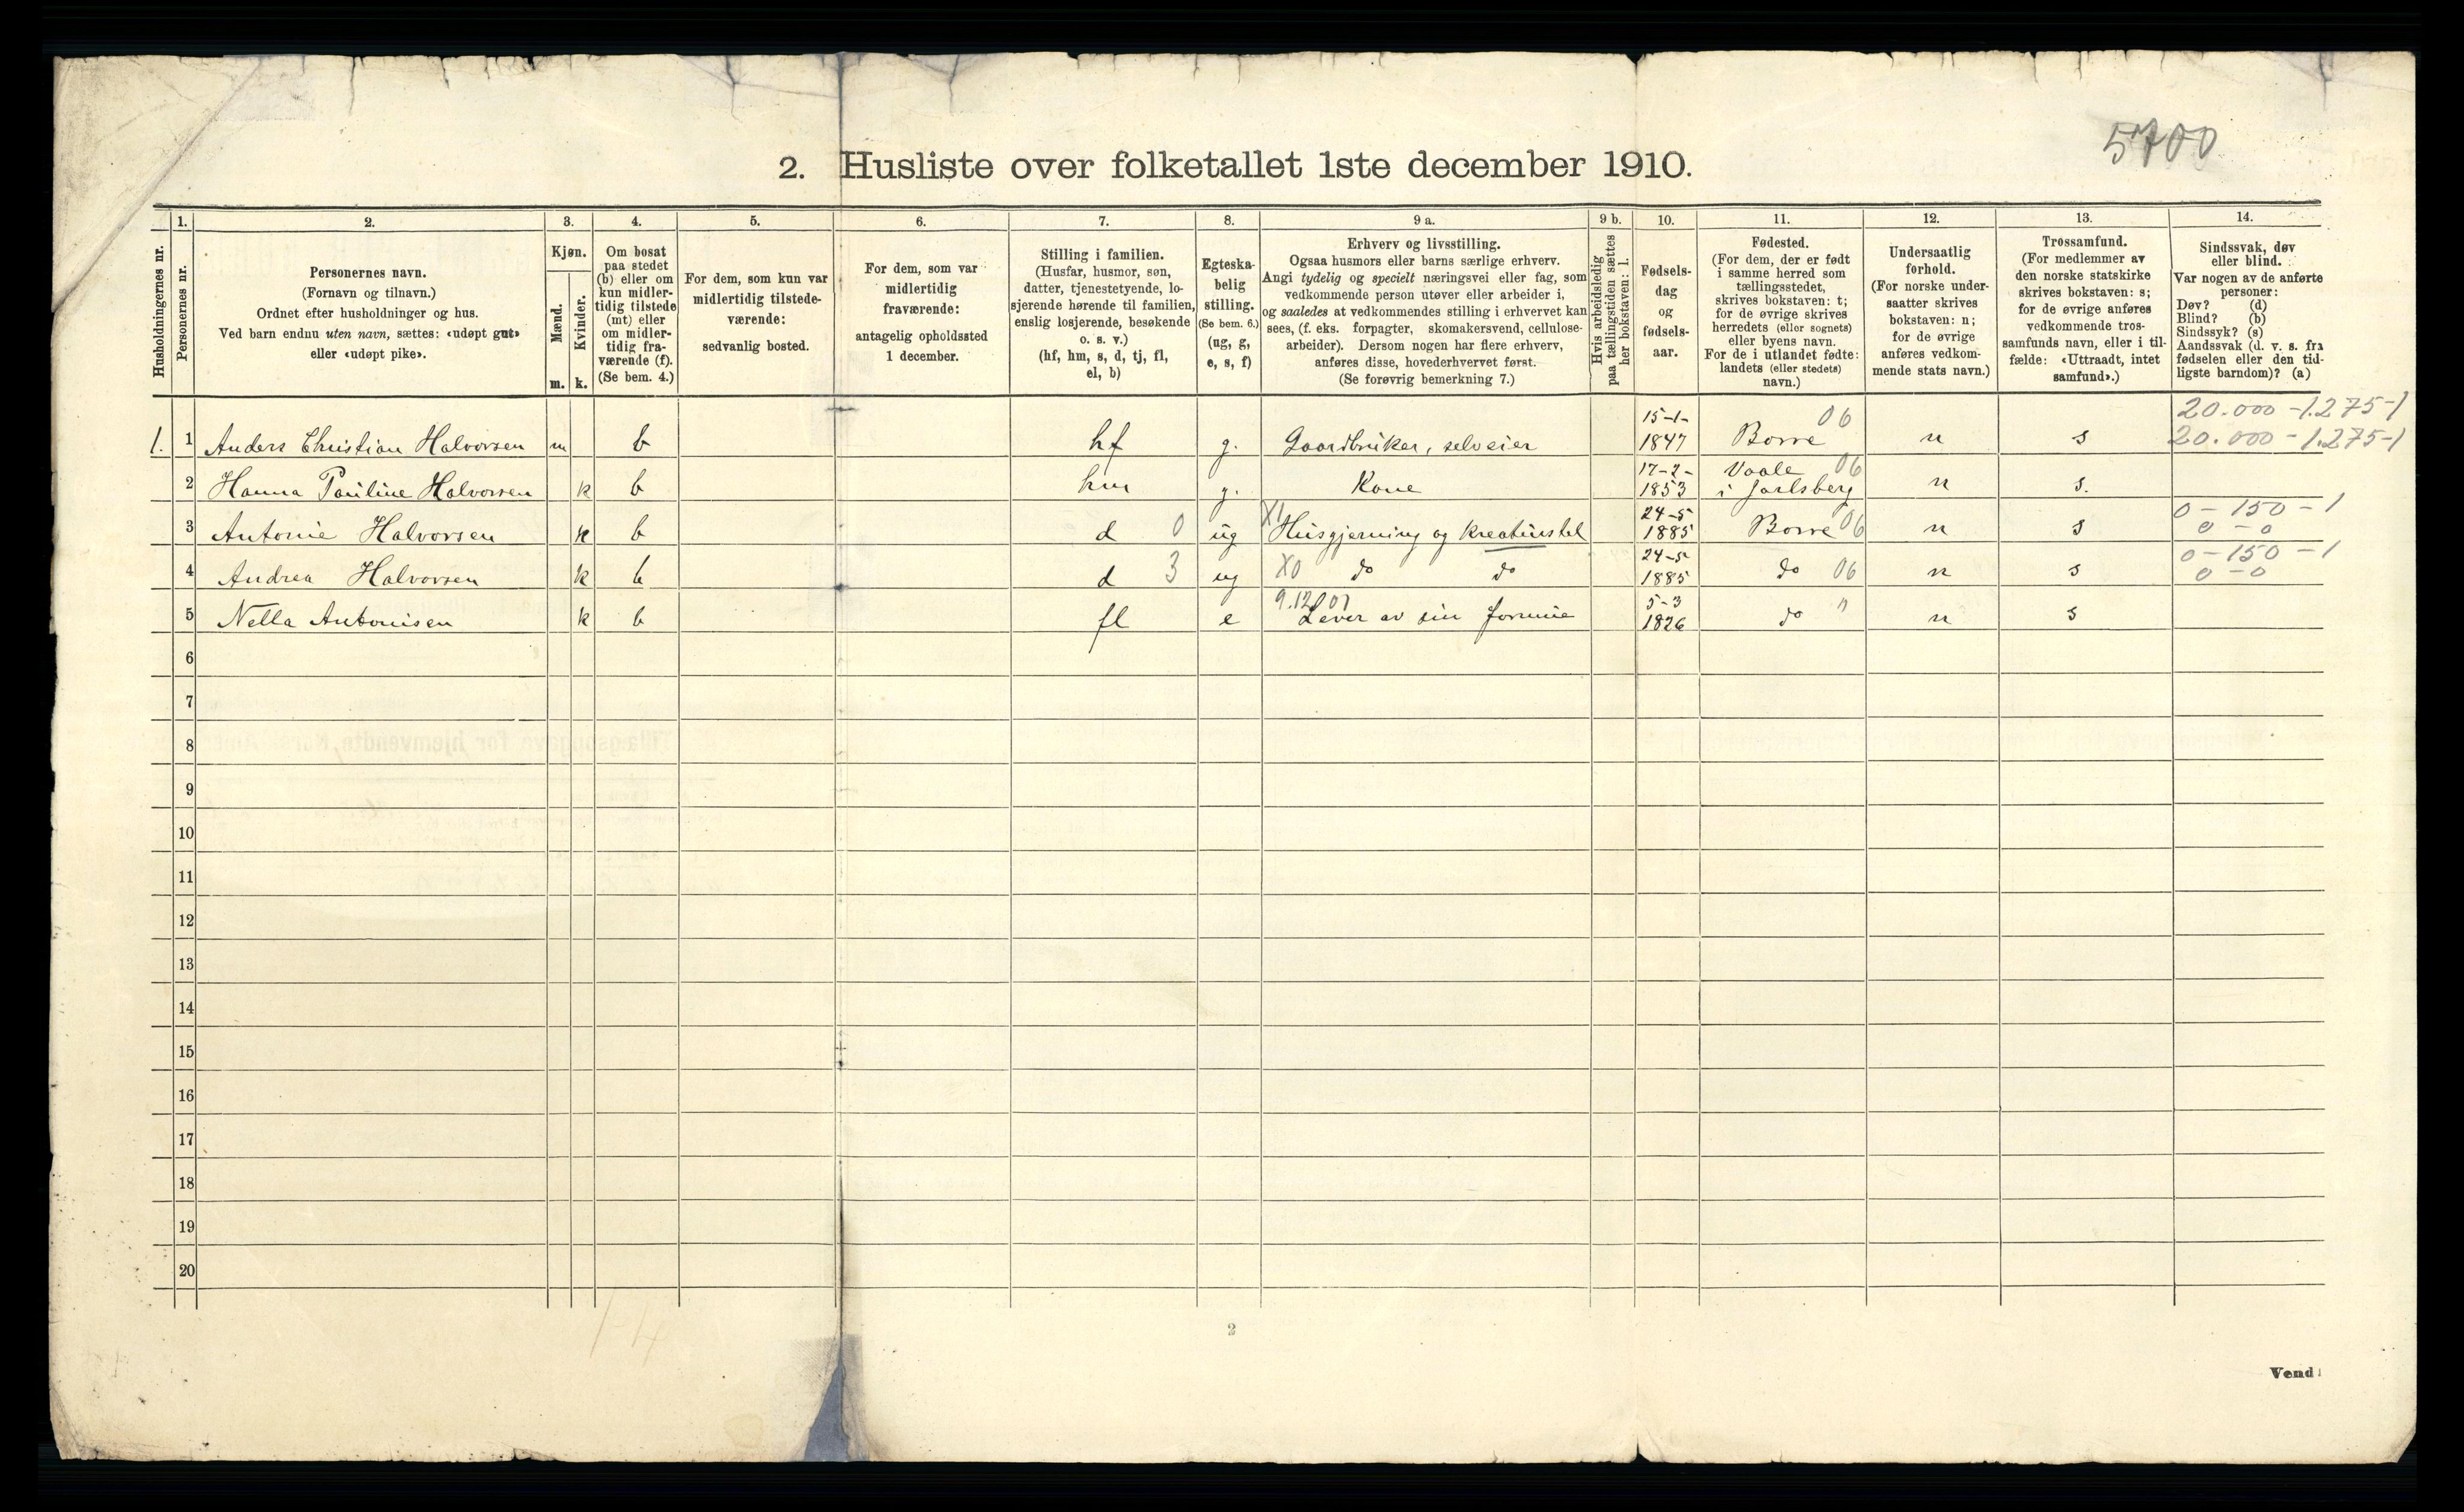 5700
2. Husliste over folketallet 1ste december 1910.
Husholdningernes nr.
1.
Personernes nr.
2.
Personernes navn.
(Fornavn og tilnavn.)
Ordnet efter husholdninger og hus.
Ved barn endnu uten navn, sættes: «udøpt gut»
eller «udøpt pike».
3.
Kjøn.
Mænd.
Kvinder.
m. k.
4.
Om bosat
paa stedet
(b) eller om
kun midler-
tidig tilstede
(mt) eller
om midler-
tidig fra-
værende (f).
(Se bem. 4.)
5.
For dem, som kun var
midlertidig tilstede-
værende:
sedvanlig bosted.
6.
For dem, som var
midlertidig
fraværende:
antagelig opholdssted
1 december.
7.
Stilling i familien.
(Husfar, husmor, søn,
datter, tjenestetyende, lo-
sjerende hørende til familien,
enslig losjerende, besøkende
o. s. v.)
(hf, hm, s, d, tj, fl,
el, b)
8.
Egteska-
belig
stilling.
(Se bem. 6.)
(ug, g,
e, s, f)
9 a.
Erhverv og livsstilling.
Ogsaa husmors eller barns særlige erhverv.
Angi tydelig og specielt næringsvei eller fag, som
vedkommende person utøver eller arbeider i,
og saaledes at vedkommendes stilling i erhvervet kan
sees, (f. eks. forpagter, skomakersvend, cellulose-
arbeider). Dersom nogen har flere erhverv,
anføres disse, hovederhvervet først.
(Se forøvrig bemerkning 7.)
9 b.
Hvis arbeidsledig
paa tællingstiden sættes
her bokstaven: l.
10.
Fødsels-
dag
og
fødsels-
aar.
11.
Fødested.
(For dem, der er født
i samme herred som
tællingsstedet,
skrives bokstaven: t;
for de øvrige skrives
herredets (eller sognets)
eller byens navn.
For de i utlandet fødte:
landets (eller stedets)
navn.)
12.
Undersaatlig
forhold.
(For norske under-
saatter skrives
bokstaven: n;
for de øvrige
anføres vedkom-
mende stats navn.)
13.
Trossamfund.
(For medlemmer av
den norske statskirke
skrives bokstaven: s;
for de øvrige anføres
vedkommende tros-
samfunds navn, eller i til-
fælde: «Uttraadt, intet
samfund».)
14.
Sindssvak, døv
eller blind.
Var nogen av de anførte
personer:
Døv? (d)
Blind? (b)
Sindssyk? (s)
Aandssvak (d. v. s. fra
fødselen eller den tid-
ligste barndom)? (a)
1. 1 Anders Christian Halvorsen m b hf g. Gaardbruker, selveier 15-1-1847 Borre 06 n s 20.000 - 1.275-1
20.000 - 1.275-1
2 Hanna Pauline Halvorsen k b hm g. Kone 17-2-1853 Vaale i Jarlsberg 06 n s.
3 Antonie Halvorsen k b d 0 ug X1 Husgjerning og kreaturstel 24-5 1885 Borre 06 n s 0 - 150 - 1
0 - 0
4 Andrea Halvorsen k b d 3 ug X0 do do 24-5 1885 do 06 n s 0 - 150 - 1
0 - 0
5 Nella Antonisen k b fl e Lever av sin formue 5-3 1826 do " n s
6
7
8
9
10
11
12
13
14
15
16
17
18
19
20
2
Vend!